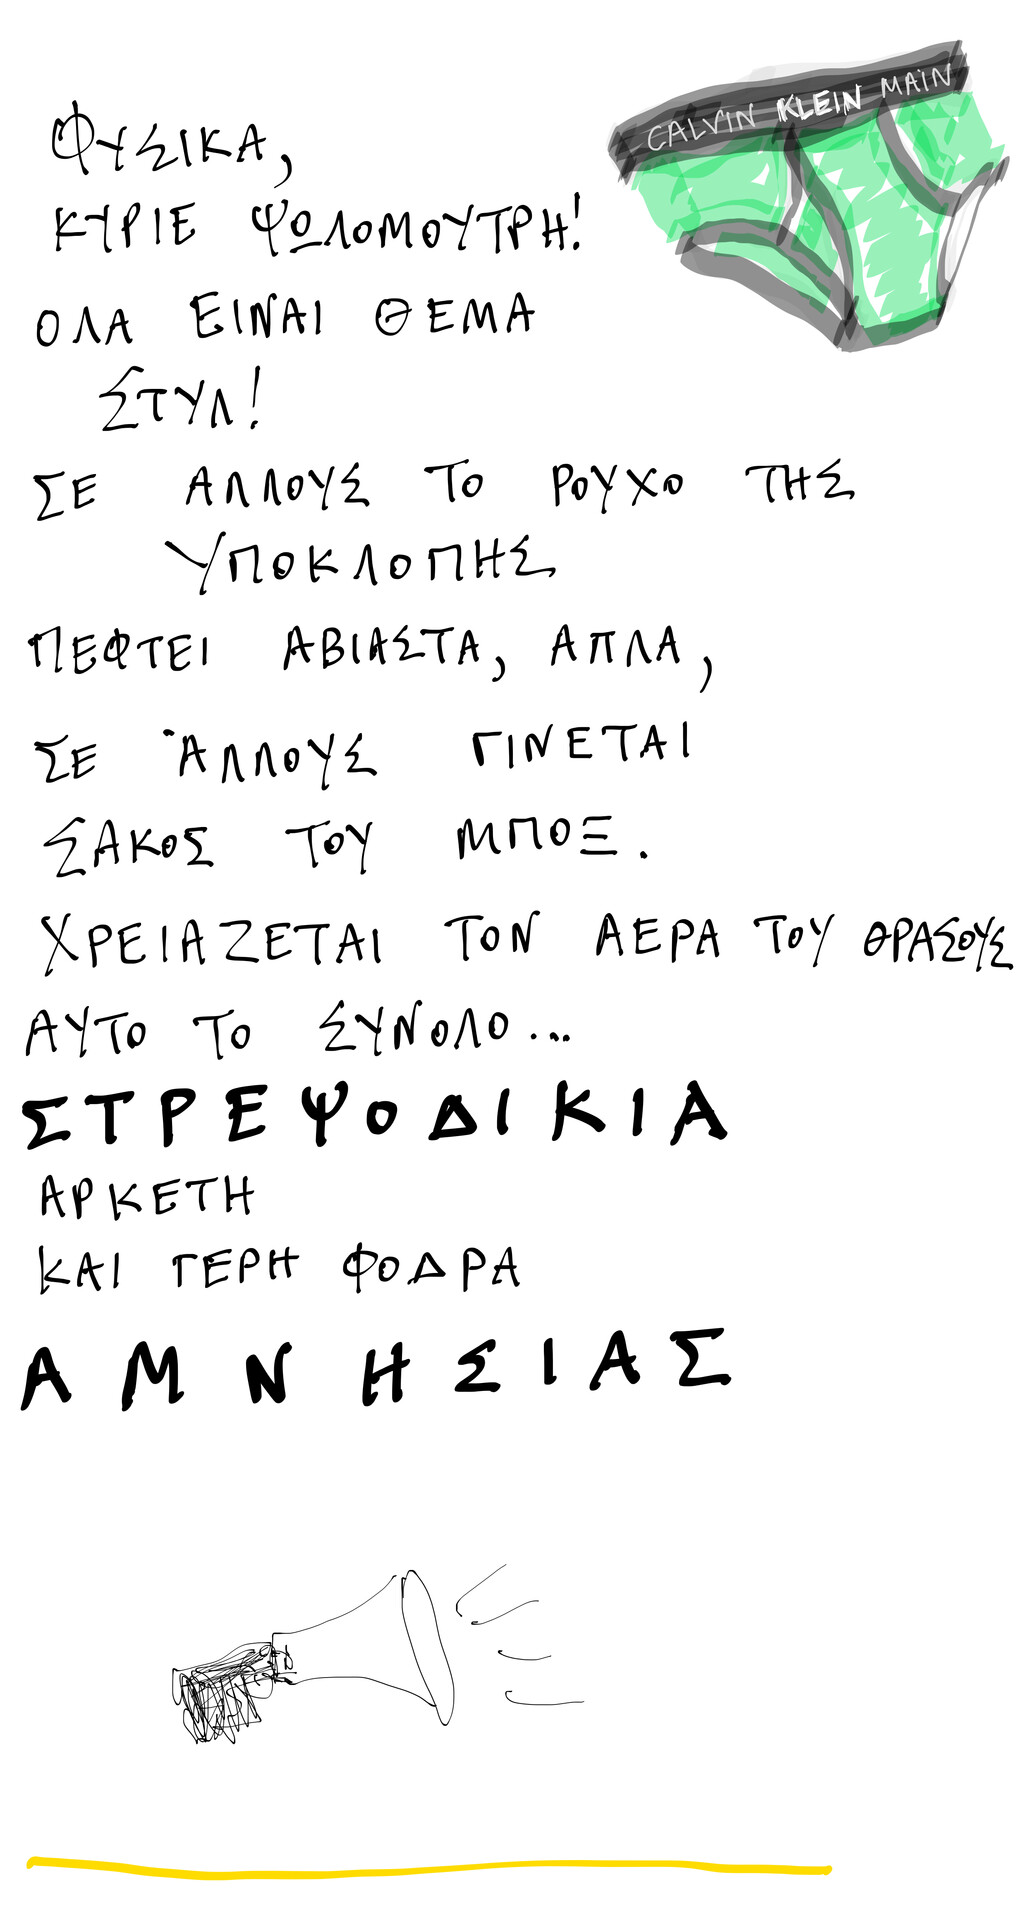 CALVIN KLEIN MAIN
ΦΥΣΙΚΑ,
ΚΥΡΙΕ ΨΩΛΟΜΟΥΤΡΗ!
ΟΛΑ ΕΙΝΑΙ ΘΕΜΑ
ΣΤΥΛ!
ΣΕ ΑΛΛΟΥΣ ΤΟ ΡΟΥΧΟ ΤΗΣ
ΥΠΟΚΛΟΠΗΣ
ΠΕΦΤΕΙ ΑΒΙΑΣΤΑ, ΑΠΛΑ,
ΣΕ ΑΛΛΟΥΣ ΓΙΝΕΤΑΙ
ΣΑΚΟΣ ΤΟΥ ΜΠΟΞ.
ΧΡΕΙΑΖΕΤΑΙ ΤΟΝ ΑΕΡΑ ΤΟΥ ΘΡΑΣΟΥΣ
ΑΥΤΟ ΤΟ ΣΥΝΟΛΟ...
ΣΤΡΕΨΟΔΙΚΙΑ
ΑΡΚΕΤΗ
ΚΑΙ ΓΕΡΗ ΦΟΔΡΑ
ΑΜΝΗΣΙΑΣ